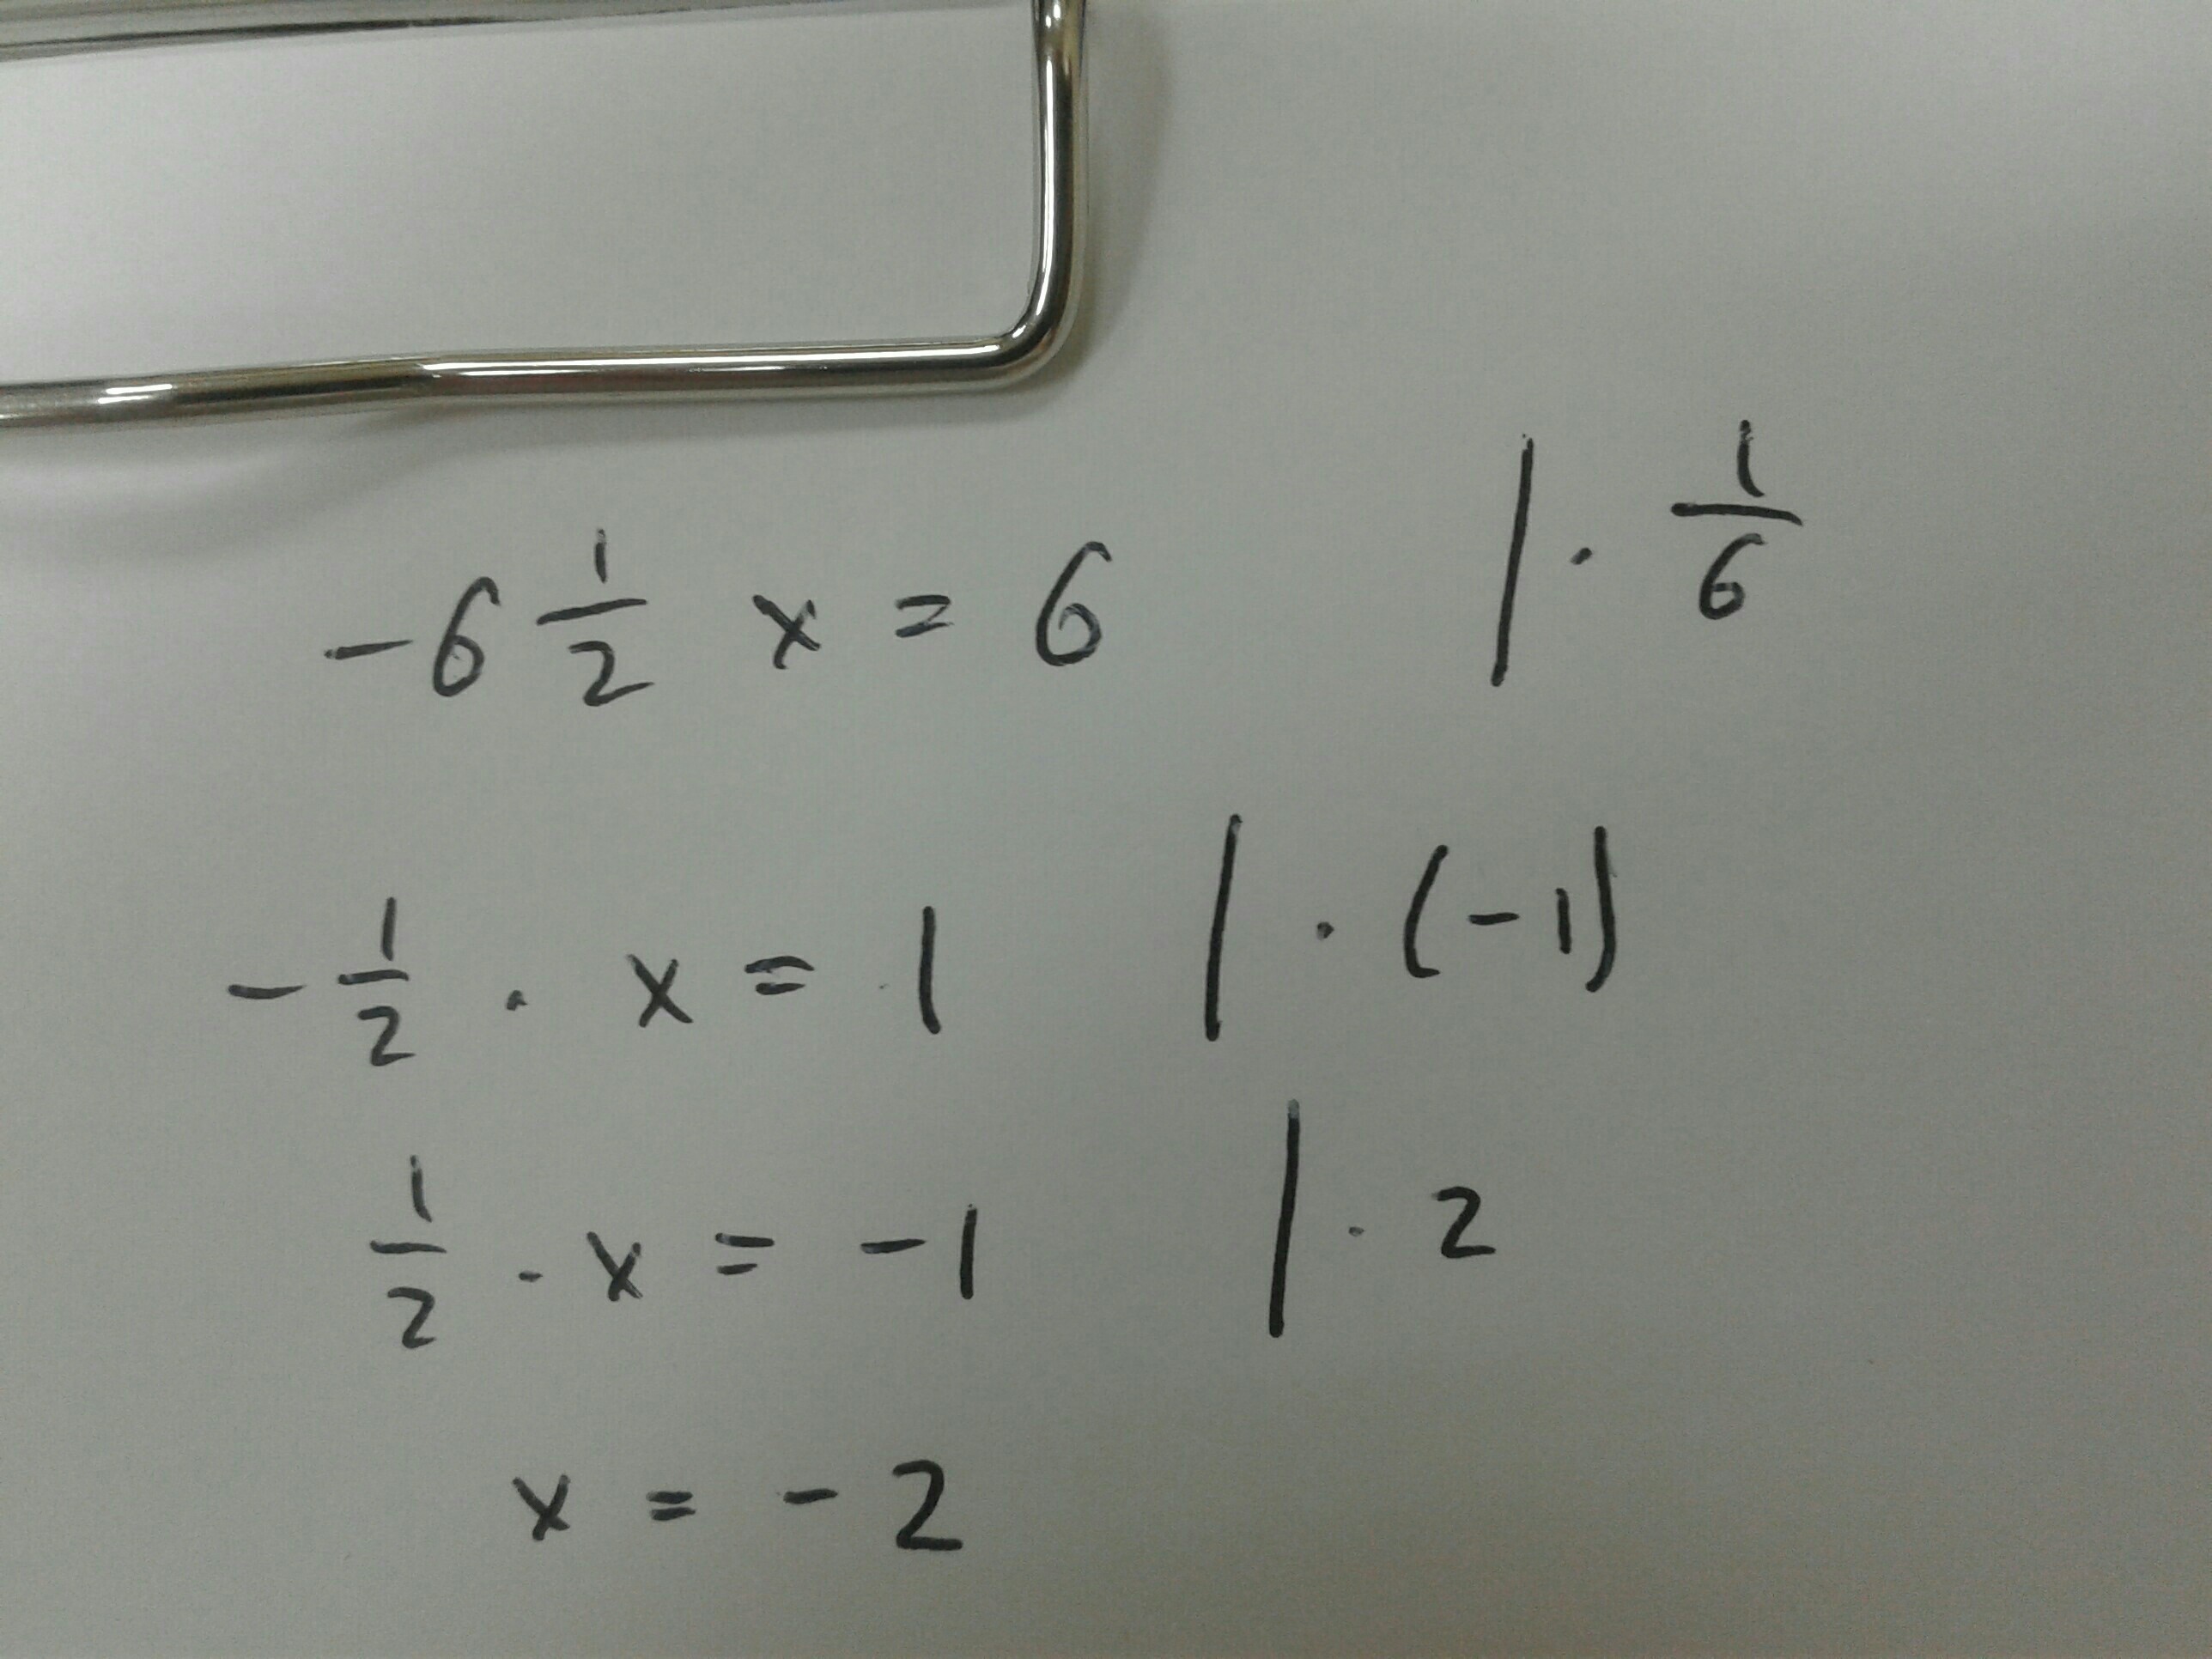 -6 1/2 x = 6 | · 1/6
-1/2 · x = 1 | · (-1)
1/2 · x = -1 | · 2
x = -2